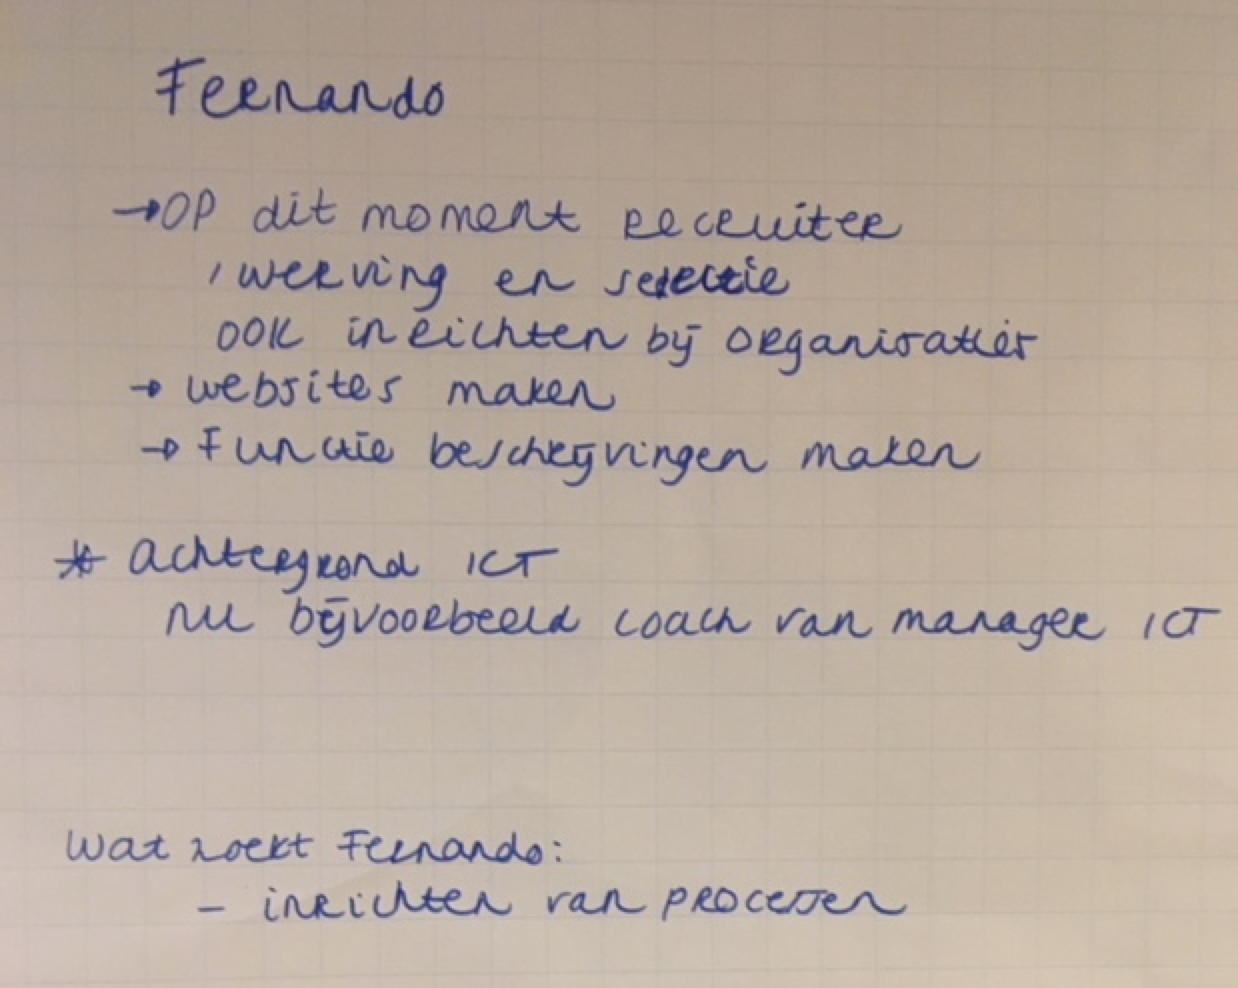 Fernando
→ OP dit moment recruiter
, werving en selectie
OOK inrichten bij organisaties
→ websites maken
→ Functie beschrijvingen maken
* Achtergrond ICT
nu bijvoorbeeld coach van manager ICT
Wat zoekt Fernando:
- inrichten van processen